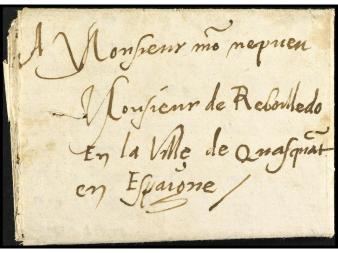 A Monsieur mõ nepueu
Monsieur de Rebolledo
En la Ville de
en Espaigne